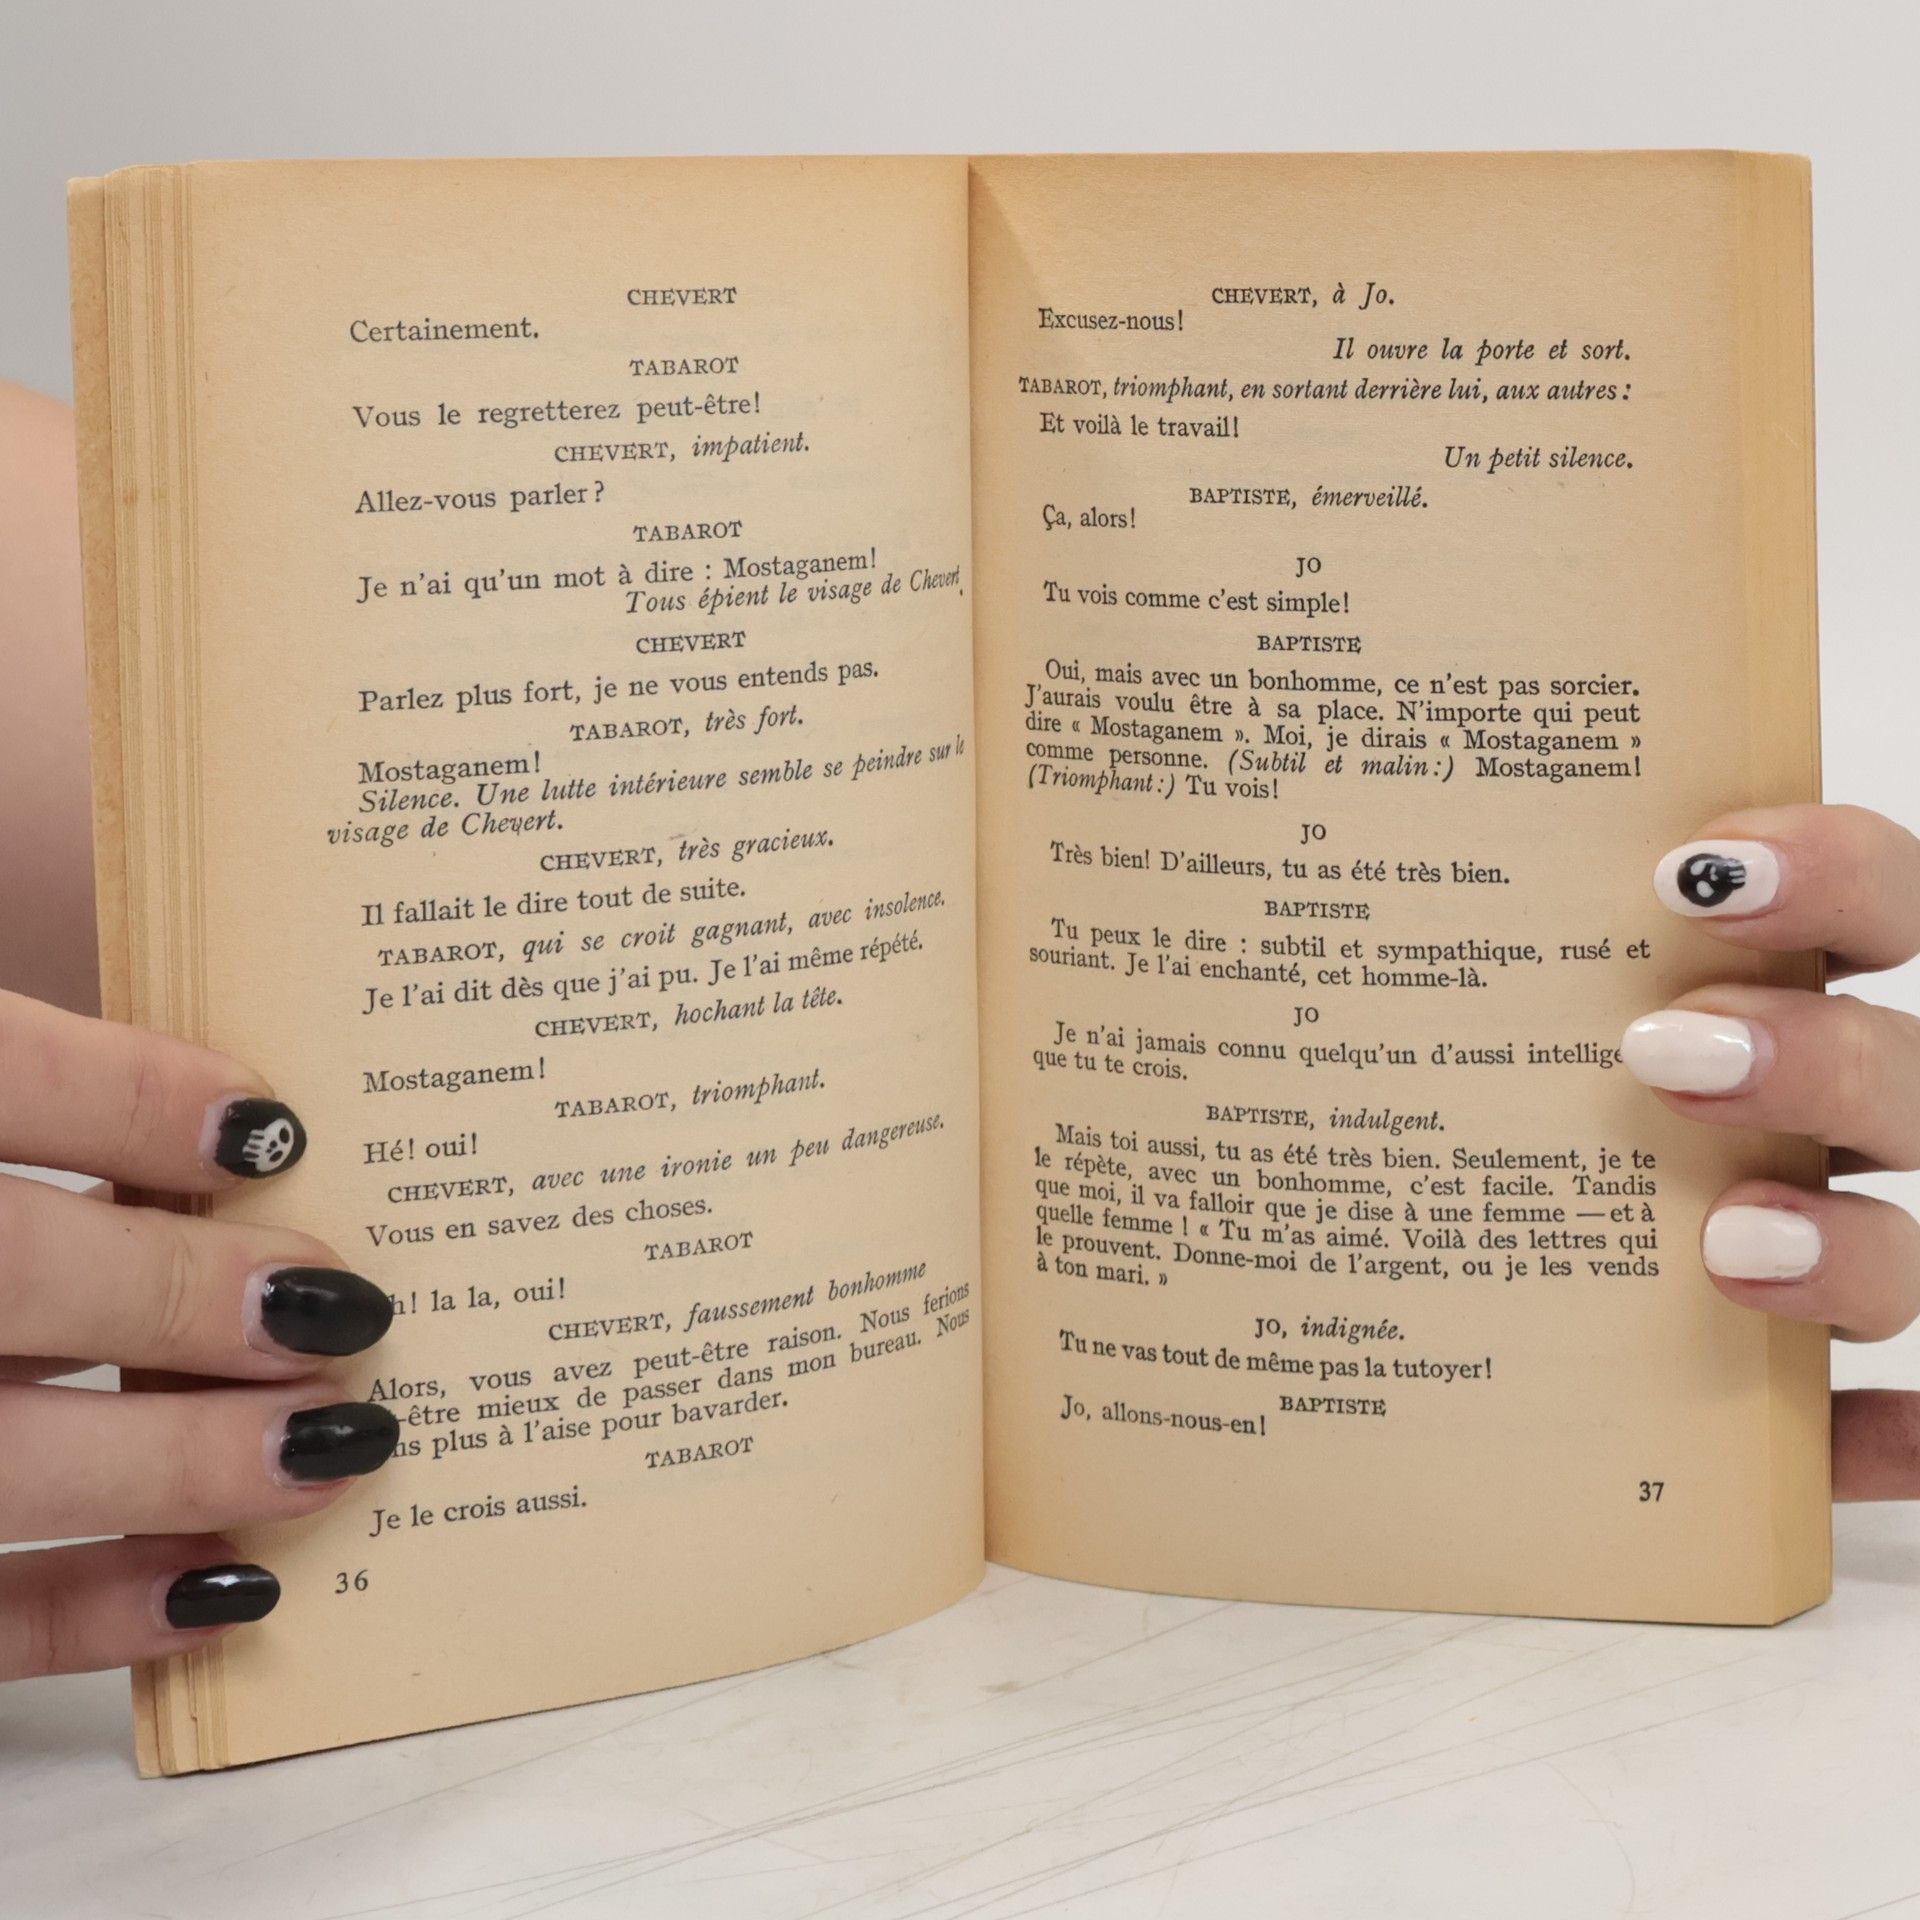 CHEVERT
Certainement.
TABAROT
Vous le regretterez peut-être!
CHEVERT, impatient.
Allez-vous parler?
TABAROT
Je n'ai qu'un mot à dire : Mostaganem!
Tous épient le visage de Chevert.
CHEVERT
Parlez plus fort, je ne vous entends pas.
TABAROT, très fort.
Mostaganem!
Silence. Une lutte intérieure semble se peindre sur le
visage de Chevert.
CHEVERT, très gracieux.
Il fallait le dire tout de suite.
TABAROT, qui se croit gagnant, avec insolence.
Je l'ai dit dès que j'ai pu. Je l'ai même répété.
CHEVERT, hochant la tête.
Mostaganem!
TABAROT, triomphant.
Hé! oui!
CHEVERT, avec une ironie un peu dangereuse.
Vous en savez des choses.
TABAROT
h! la la, oui!
CHEVERT, faussement bonhomme
Alors, vous avez peut-être raison. Nous ferions
-être mieux de passer dans mon bureau. Nous
ns plus à l'aise pour bavarder.
TABAROT
Je le crois aussi.
36
CHEVERT, à Jo.
Excusez-nous!
Il ouvre la porte et sort.
TABAROT, triomphant, en sortant derrière lui, aux autres :
Et voilà le travail!
Un petit silence.
BAPTISTE, émerveillé.
Ça, alors!
JO
Tu vois comme c'est simple!
BAPTISTE
Oui, mais avec un bonhomme, ce n'est pas sorcier.
J'aurais voulu être à sa place. N'importe qui peut
dire « Mostaganem ». Moi, je dirais « Mostaganem »
comme personne. (Subtil et malin :) Mostaganem!
(Triomphant :) Tu vois!
JO
Très bien! D'ailleurs, tu as été très bien.
BAPTISTE
Tu peux le dire : subtil et sympathique, rusé et
souriant. Je l'ai enchanté, cet homme-là.
JO
Je n'ai jamais connu quelqu'un d'aussi intellige
que tu te crois.
BAPTISTE, indulgent.
Mais toi aussi, tu as été très bien. Seulement, je te
le répète, avec un bonhomme, c'est facile. Tandis
que moi, il va falloir que je dise à une femme — et à
quelle femme ! « Tu m'as aimé. Voilà des lettres qui
le prouvent. Donne-moi de l'argent, ou je les vends
à ton mari. »
JO, indignée.
Tu ne vas tout de même pas la tutoyer!
BAPTISTE
Jo, allons-nous-en!
37